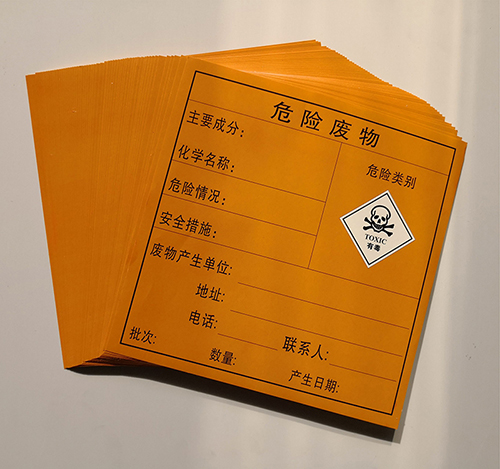 危险废物
主要成分:
化学名称:
危险类别
TOXIC
有毒
危险情况:
安全措施:
废物产生单位:
地址:
电话:
联系人:
批次:
数量:
产生日期: